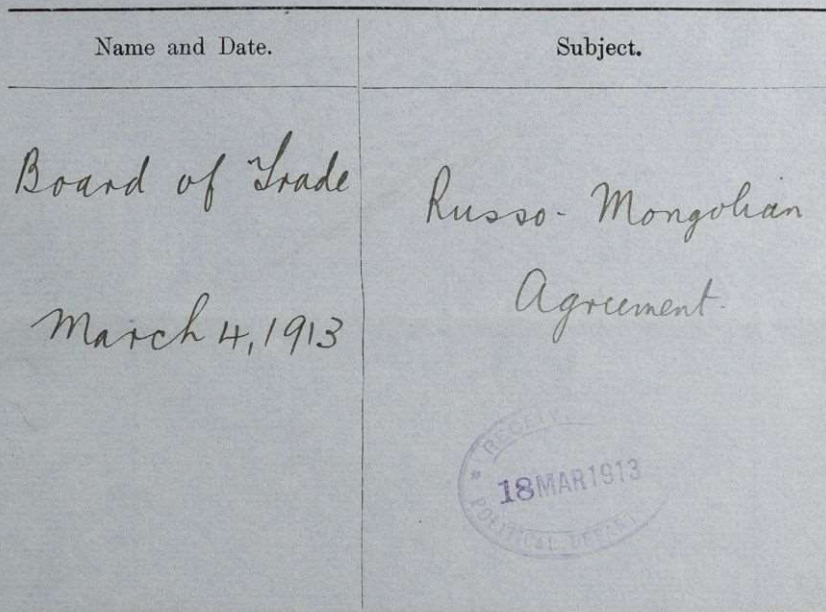 Name and Date.
Subject.
Board of Trade
March 4, 1913
Russo-Mongolian
Agreement.
18 MAR 1913
POLITICAL